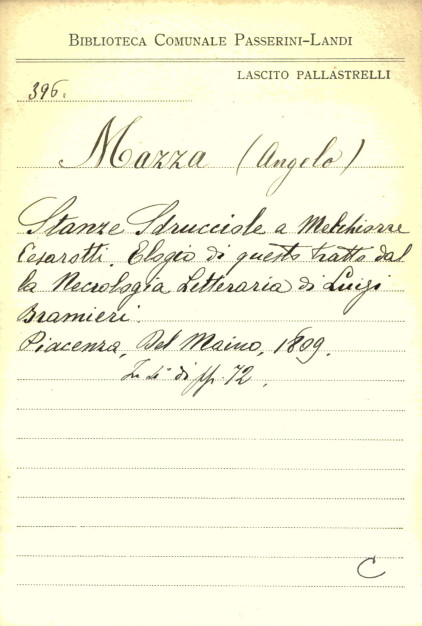 BIBLIOTECA COMUNALE PASSERINI-LANDI
LASCITO PALLASTRELLI
396.
Mazza (Angelo)
Stanze Sdrucciole a Melchiorre
Cesarotti. Elogio di questo tratto dal
la Necrologia Letteraria di Luigi
Bramieri.
Piacenza, Del Maino, 1809.
di pp. 72.
C